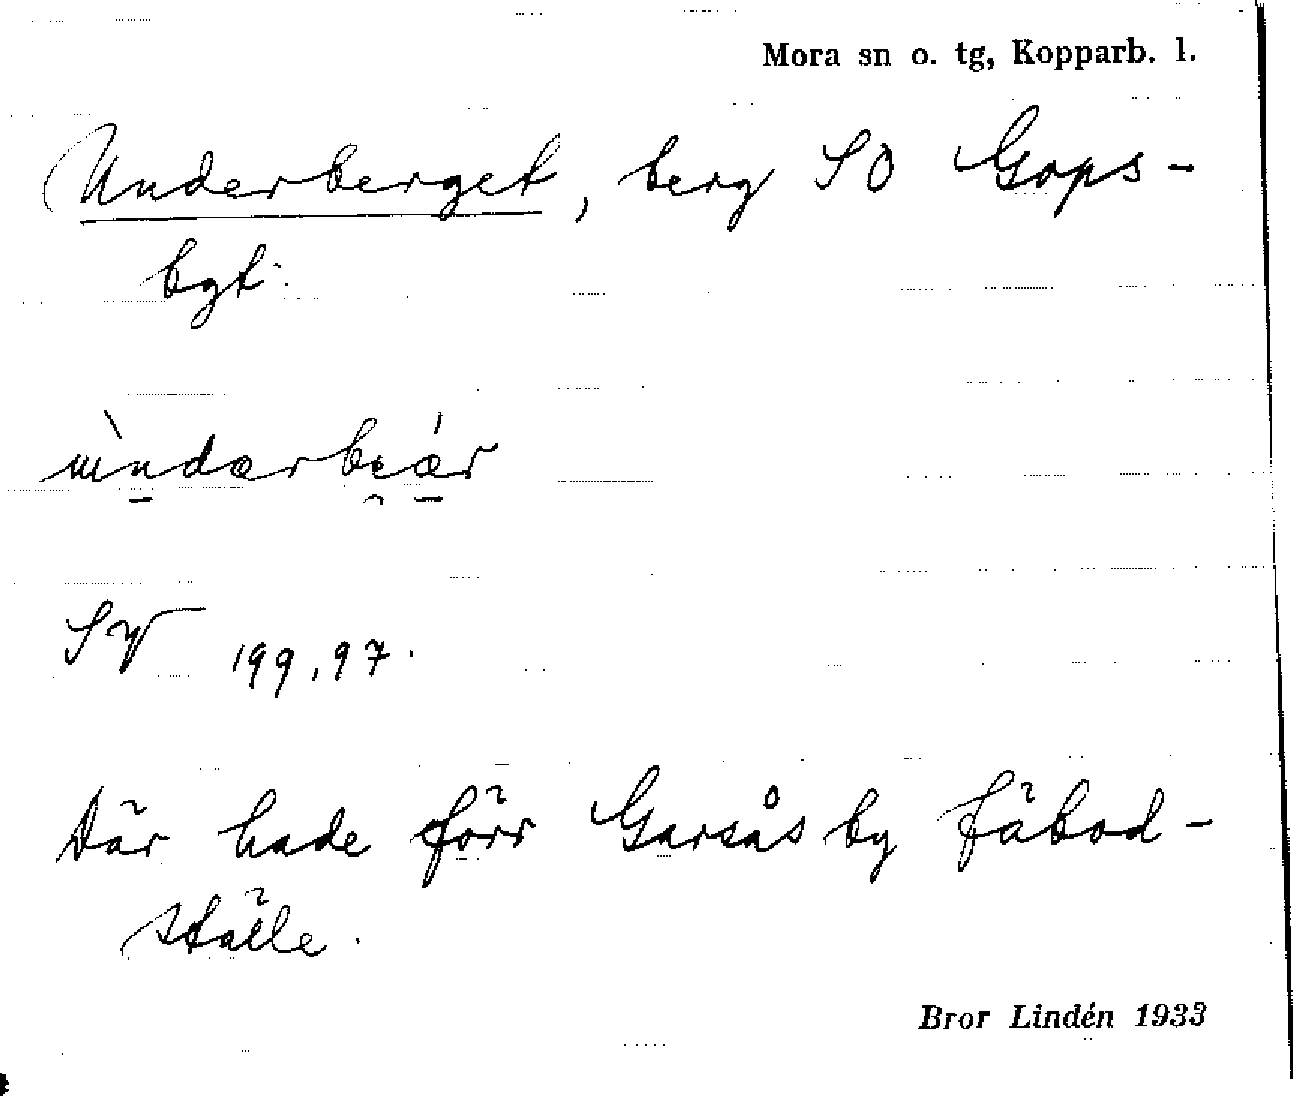 Mora sn o. tg, Kopparb. l.
Underberget, berg SO Gops-
bgt.
ùndærbe̯ǽr
SV 199, 97.
Där hade förr Garsås by fäbod-
ställe.
Bror Lindén 1933